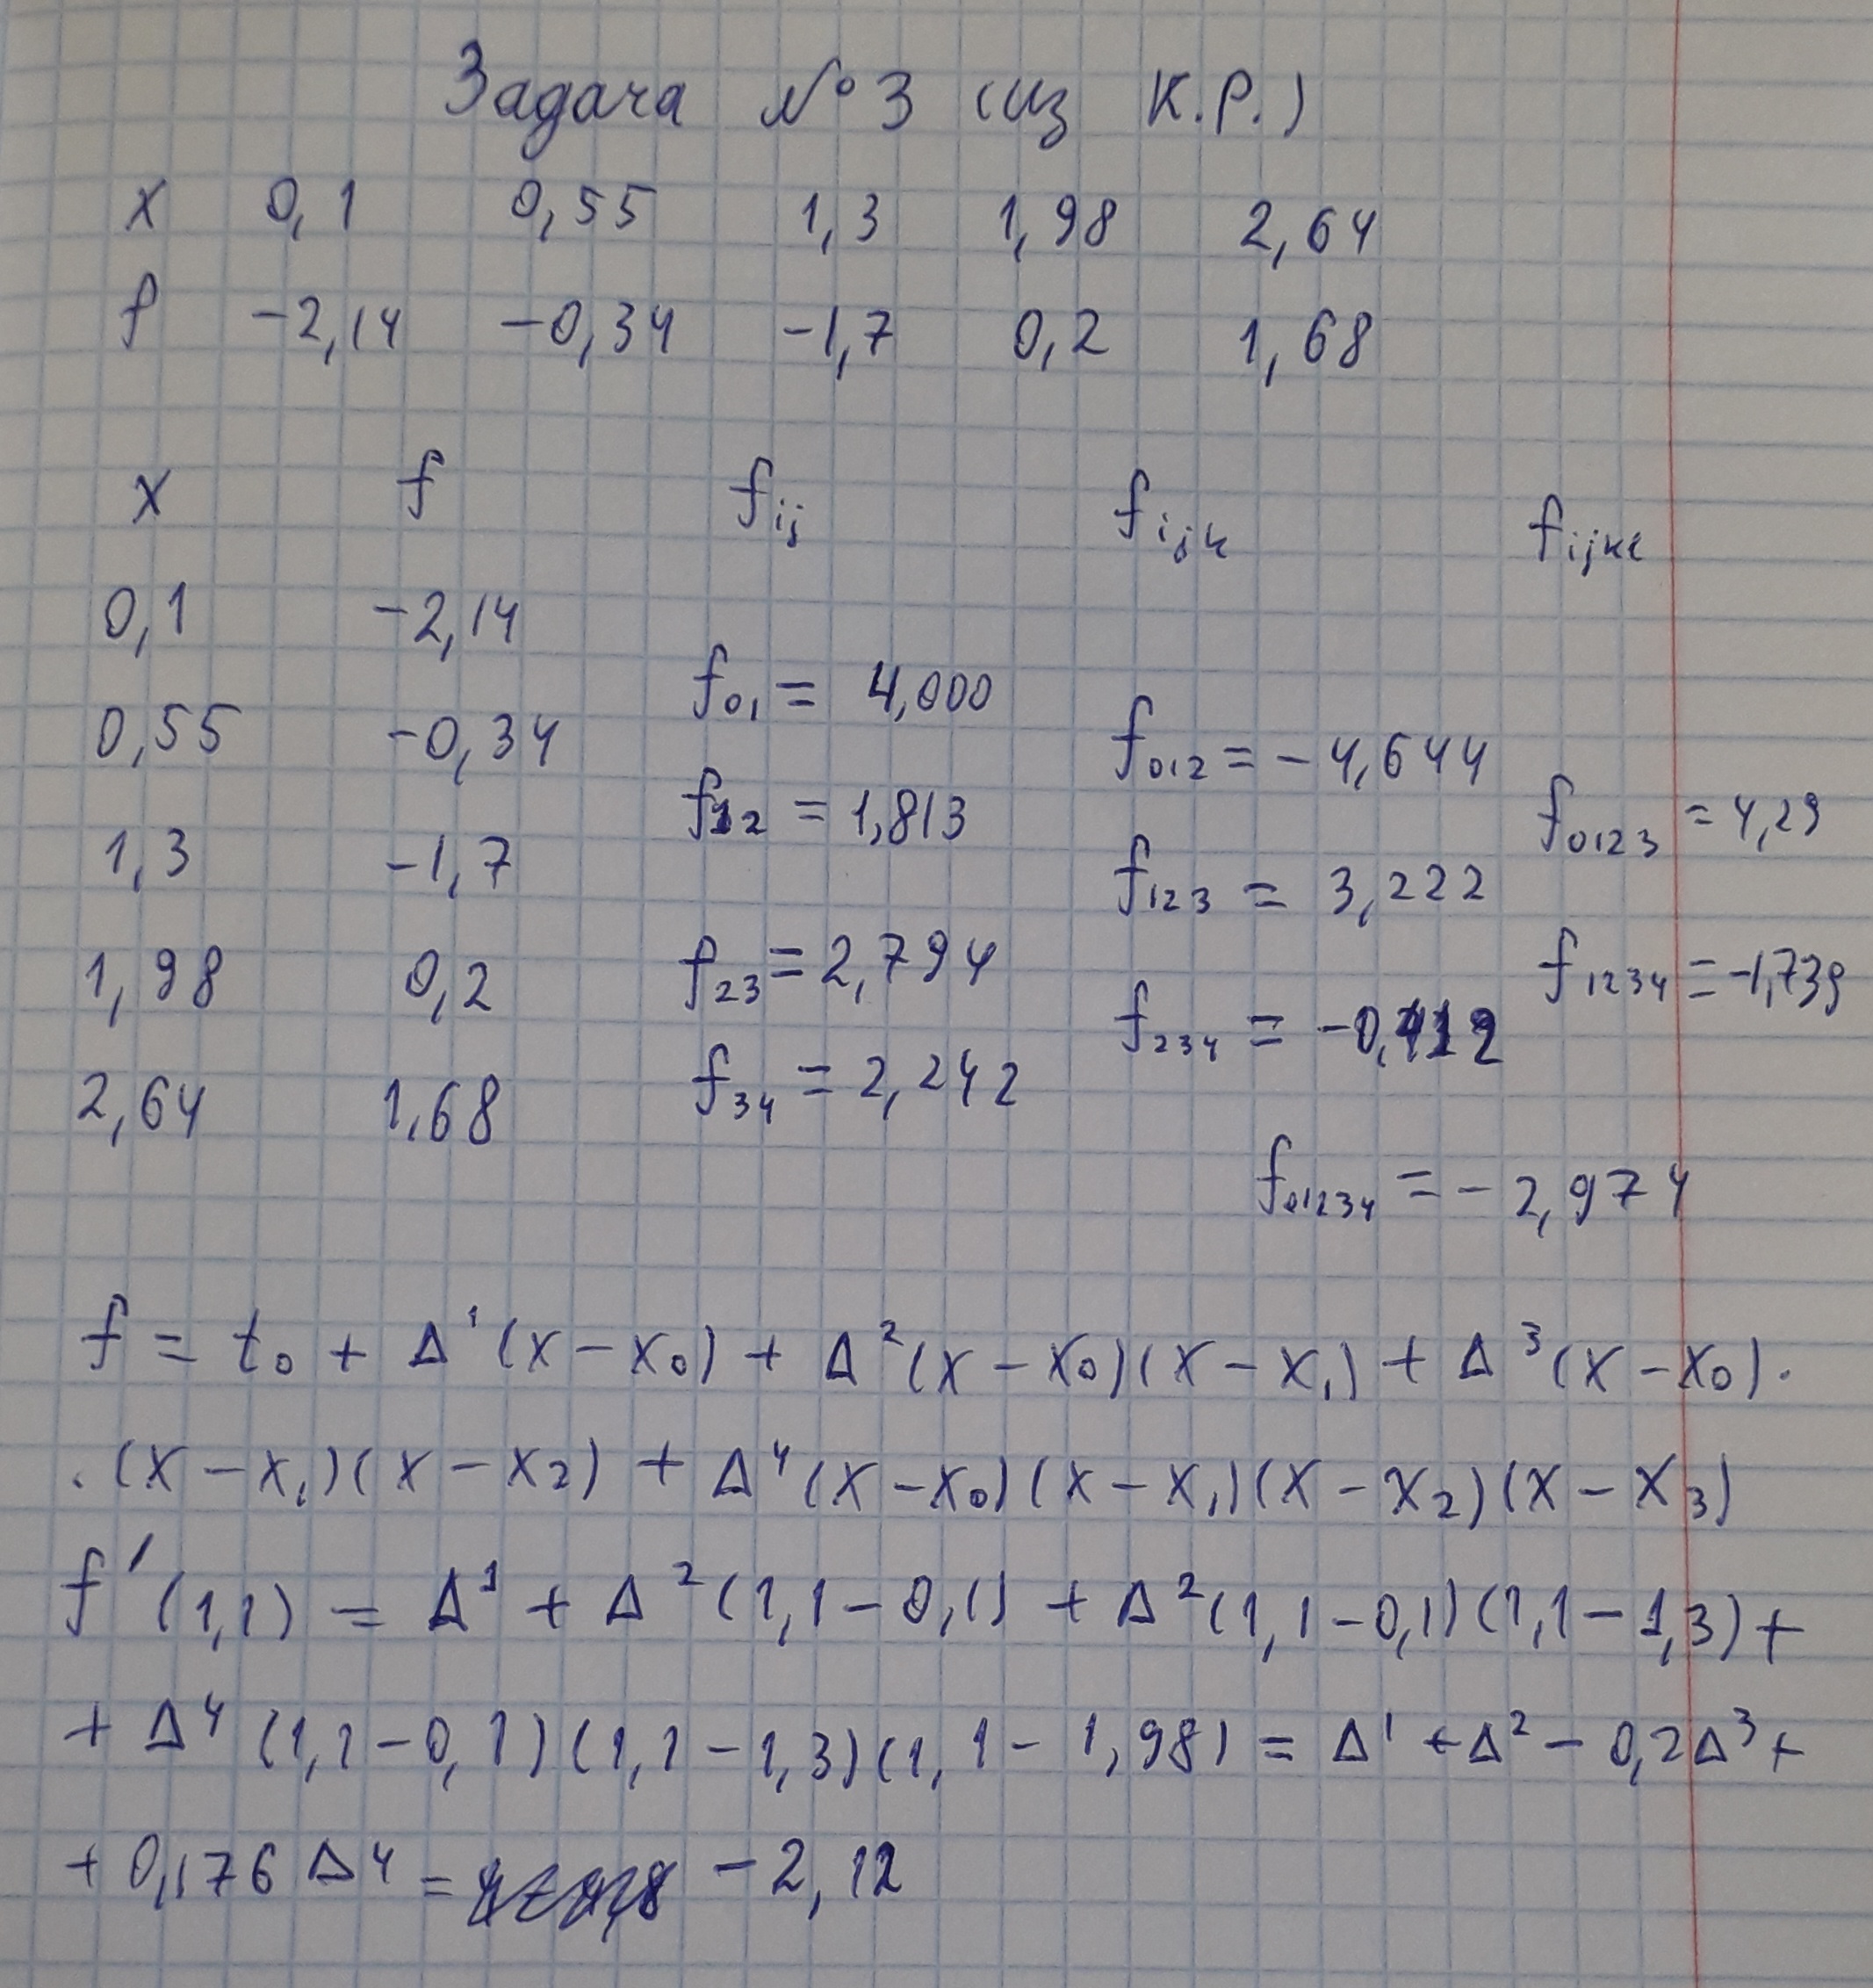 Задача №3 (из К.Р.)
x 0,1 0,55 1,3 1,98 2,64
f -2,14 -0,34 -1,7 0,2 1,68
x f f_ij f_ijk f_ijkl
0,1 -2,14
f_01 = 4,000
0,55 -0,34 f_012 = -4,644
f_12 = 1,813 f_0123 = 4,29
1,3 -1,7 f_123 = 3,222
1,98 0,2 f_23 = 2,794 f_1234 = -1,739
f_234 = -0,412
2,64 1,68 f_34 = 2,242
f_01234 = -2,974
f = t_0 + Δ^1(x - x_0) + Δ^2(x - x_0)(x - x_1) + Δ^3(x - x_0)·
·(x - x_1)(x - x_2) + Δ^4(x - x_0)(x - x_1)(x - x_2)(x - x_3)
f'(1,1) = Δ^1 + Δ^2(1,1 - 0,1) + Δ^2(1,1 - 0,1)(1,1 - 1,3) +
+ Δ^4(1,1 - 0,1)(1,1 - 1,3)(1,1 - 1,98) = Δ^1 + Δ^2 - 0,2Δ^3 +
+ 0,176Δ^4 = -2,12